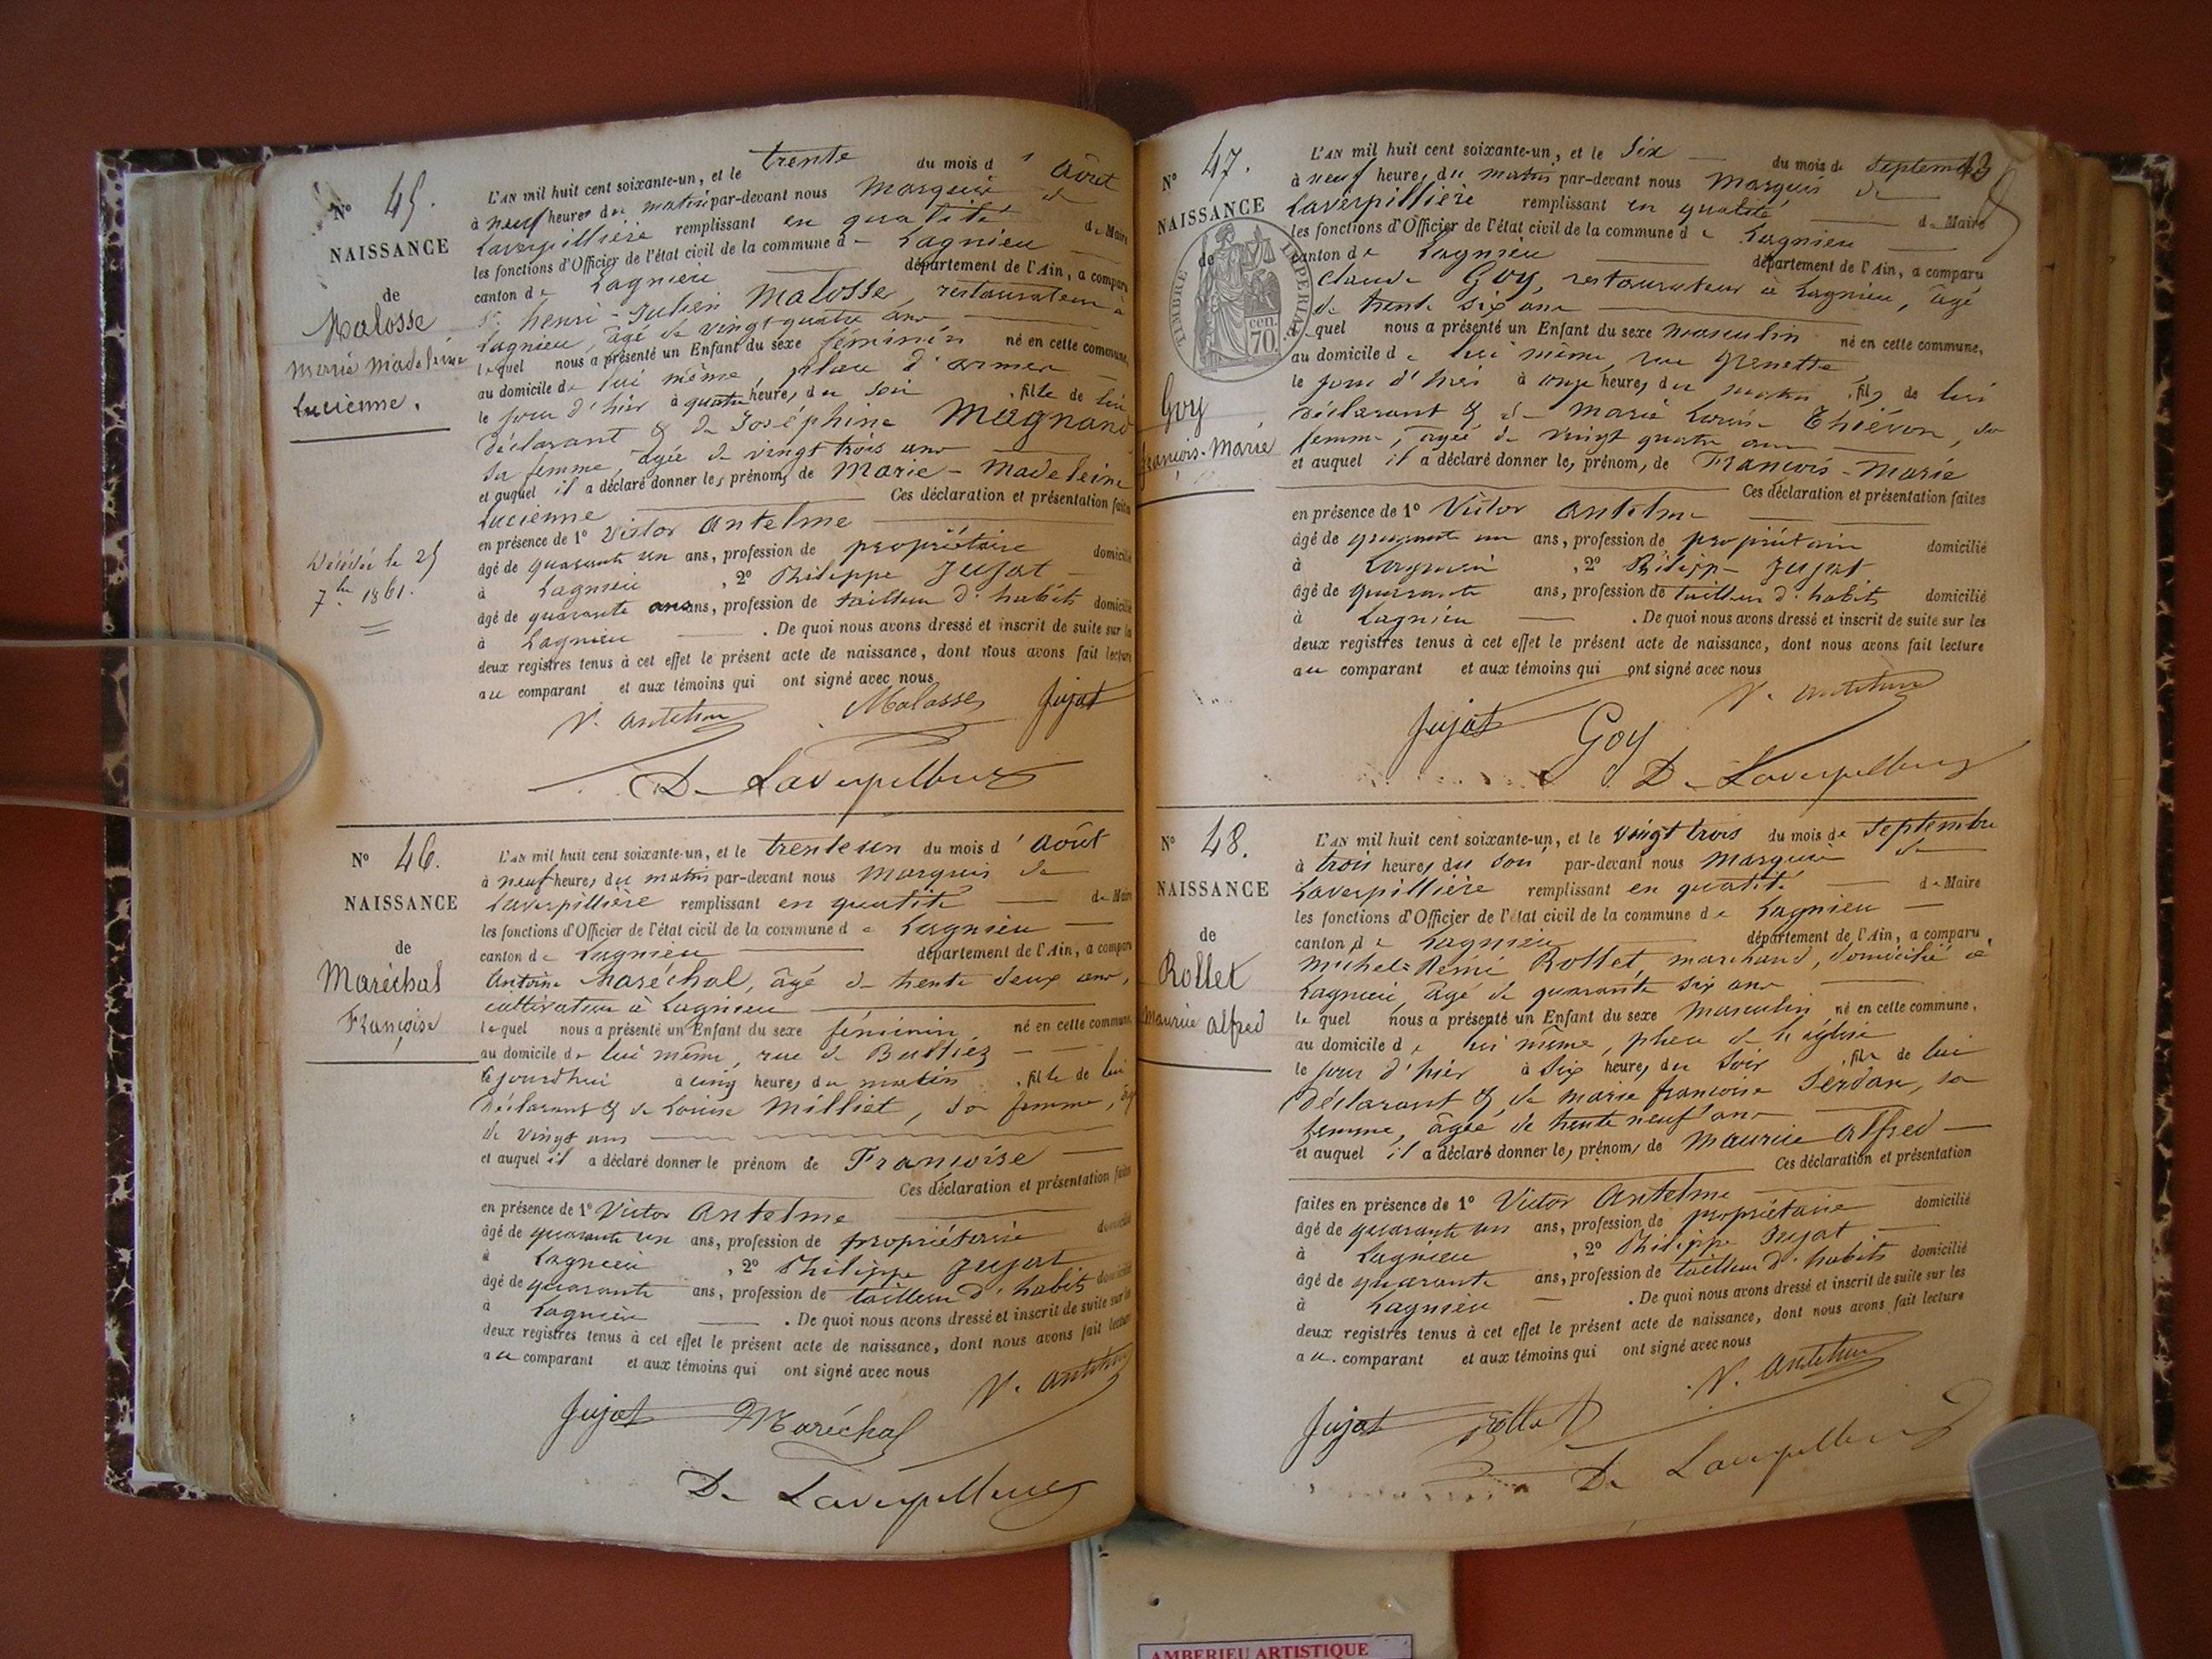 N° 45.
NAISSANCE
de
Malosse
Marie Madeleine
Lucienne.
Décédée le 25
7bre 1861.
L'AN mil huit cent soixante-un, et le trente du mois d'Août
à neuf heures du matin par-devant nous Marquis de
Laverpillière remplissant en qualité de Maire
les fonctions d'Officier de l'état civil de la commune de Lagnieu
canton de Lagnieu département de l'Ain, a comparu
Sr henri-Julien Malosse, restaurateur à
Lagnieu, âgé de vingt quatre ans
lequel nous a présenté un Enfant du sexe féminin né en cette commune,
au domicile de lui même, place d'armes
le jour d'hier à quatre heures du soir, fille de lui
déclarant & de Joséphine Magnand
sa femme, âgée de vingt trois ans
et auquel il a déclaré donner les prénoms de Marie-Madeleine
Lucienne Ces déclaration et présentation faites
en présence de 1° Victor Antelme
âgé de quarante un ans, profession de propriétaire domicilié
à Lagnieu, 2° Philippe Jujat
âgé de quarante ans, profession de tailleur d'habits domicilié
à Lagnieu. De quoi nous avons dressé et inscrit de suite sur les
deux registres tenus à cet effet le présent acte de naissance, dont nous avons fait lecture
au comparant et aux témoins qui ont signé avec nous
V. Antelme Malosse Jujat
De Laverpilliere
N° 46.
NAISSANCE
de
Maréchal
Françoise
L'AN mil huit cent soixante-un, et le trente un du mois d'Août
à neuf heures du matin par-devant nous Marquis de
Laverpillière remplissant en qualité de Maire
les fonctions d'Officier de l'état civil de la commune de Lagnieu
canton de Lagnieu département de l'Ain, a comparu
Antoine Maréchal, âgé de trente deux ans,
cultivateur à Lagnieu
lequel nous a présenté un Enfant du sexe féminin né en cette commune,
au domicile de lui même, rue de
cejourdhui à cinq heures du matin, fille de lui
déclarant & de Louise Milliet, sa femme, âgée
de vingt ans
et auquel il a déclaré donner le prénom de Françoise
Ces déclaration et présentation faites
en présence de 1° Victor Antelme
âgé de quarante un ans, profession de propriétaire domicilié
à Lagnieu, 2° Philippe Jujat
âgé de quarante ans, profession de tailleur d'habits domicilié
à Lagnieu. De quoi nous avons dressé et inscrit de suite sur les
deux registres tenus à cet effet le présent acte de naissance, dont nous avons fait lecture
au comparant et aux témoins qui ont signé avec nous
V. Antelme
Jujat Maréchal
De Laverpilliere
13
N° 47.
NAISSANCE
de
TIMBRE IMPERIAL
70 cen.
Goy
François-Marie
L'AN mil huit cent soixante-un, et le Six du mois de Septembre
à neuf heures du matin par-devant nous Marquis de
Laverpillière remplissant en qualité de Maire
les fonctions d'Officier de l'état civil de la commune de Lagnieu
canton de Lagnieu département de l'Ain, a comparu
Claude Goy, restaurateur à Lagnieu, âgé
de trente six ans
lequel nous a présenté un Enfant du sexe masculin né en cette commune,
au domicile de lui même, rue Grenette
le jour d'hier à onze heures du matin, fils de lui
déclarant & de Marie Louise Thiévon, sa
femme, âgée de vingt quatre ans
et auquel il a déclaré donner les prénoms de François-Marie
Ces déclaration et présentation faites
en présence de 1° Victor Antelme
âgé de quarante un ans, profession de propriétaire domicilié
à Lagnieu, 2° Philippe Jujat
âgé de quarante ans, profession de tailleur d'habits domicilié
à Lagnieu. De quoi nous avons dressé et inscrit de suite sur les
deux registres tenus à cet effet le présent acte de naissance, dont nous avons fait lecture
au comparant et aux témoins qui ont signé avec nous
V. Antelme
Jujat Goy
De Laverpilliere
N° 48.
NAISSANCE
de
Rollet
Maurice Alfred
L'AN mil huit cent soixante-un, et le vingt trois du mois de Septembre
à trois heures du soir par-devant nous Marquis de
Laverpillière remplissant en qualité de Maire
les fonctions d'Officier de l'état civil de la commune de Lagnieu
canton de Lagnieu département de l'Ain, a comparu
Michel-Rémi Rollet, marchand, domicilié à
Lagnieu, âgé de quarante six ans
lequel nous a présenté un Enfant du sexe Masculin né en cette commune,
au domicile de lui même, place de l'église
le jour d'hier à Six heures du Soir, fils de lui
déclarant & de Marie françoise Serdan, sa
femme, âgée de trente neuf ans
et auquel il a déclaré donner les prénoms de Maurice Alfred
Ces déclaration et présentation
faites en présence de 1° Victor Antelme
âgé de quarante un ans, profession de propriétaire domicilié
à Lagnieu, 2° Philippe Jujat
âgé de quarante ans, profession de tailleur d'habits domicilié
à Lagnieu. De quoi nous avons dressé et inscrit de suite sur les
deux registres tenus à cet effet le présent acte de naissance, dont nous avons fait lecture
au comparant et aux témoins qui ont signé avec nous
V. Antelme
Jujat Rollet
De Laverpilliere
AMBERIEU ARTISTIQUE